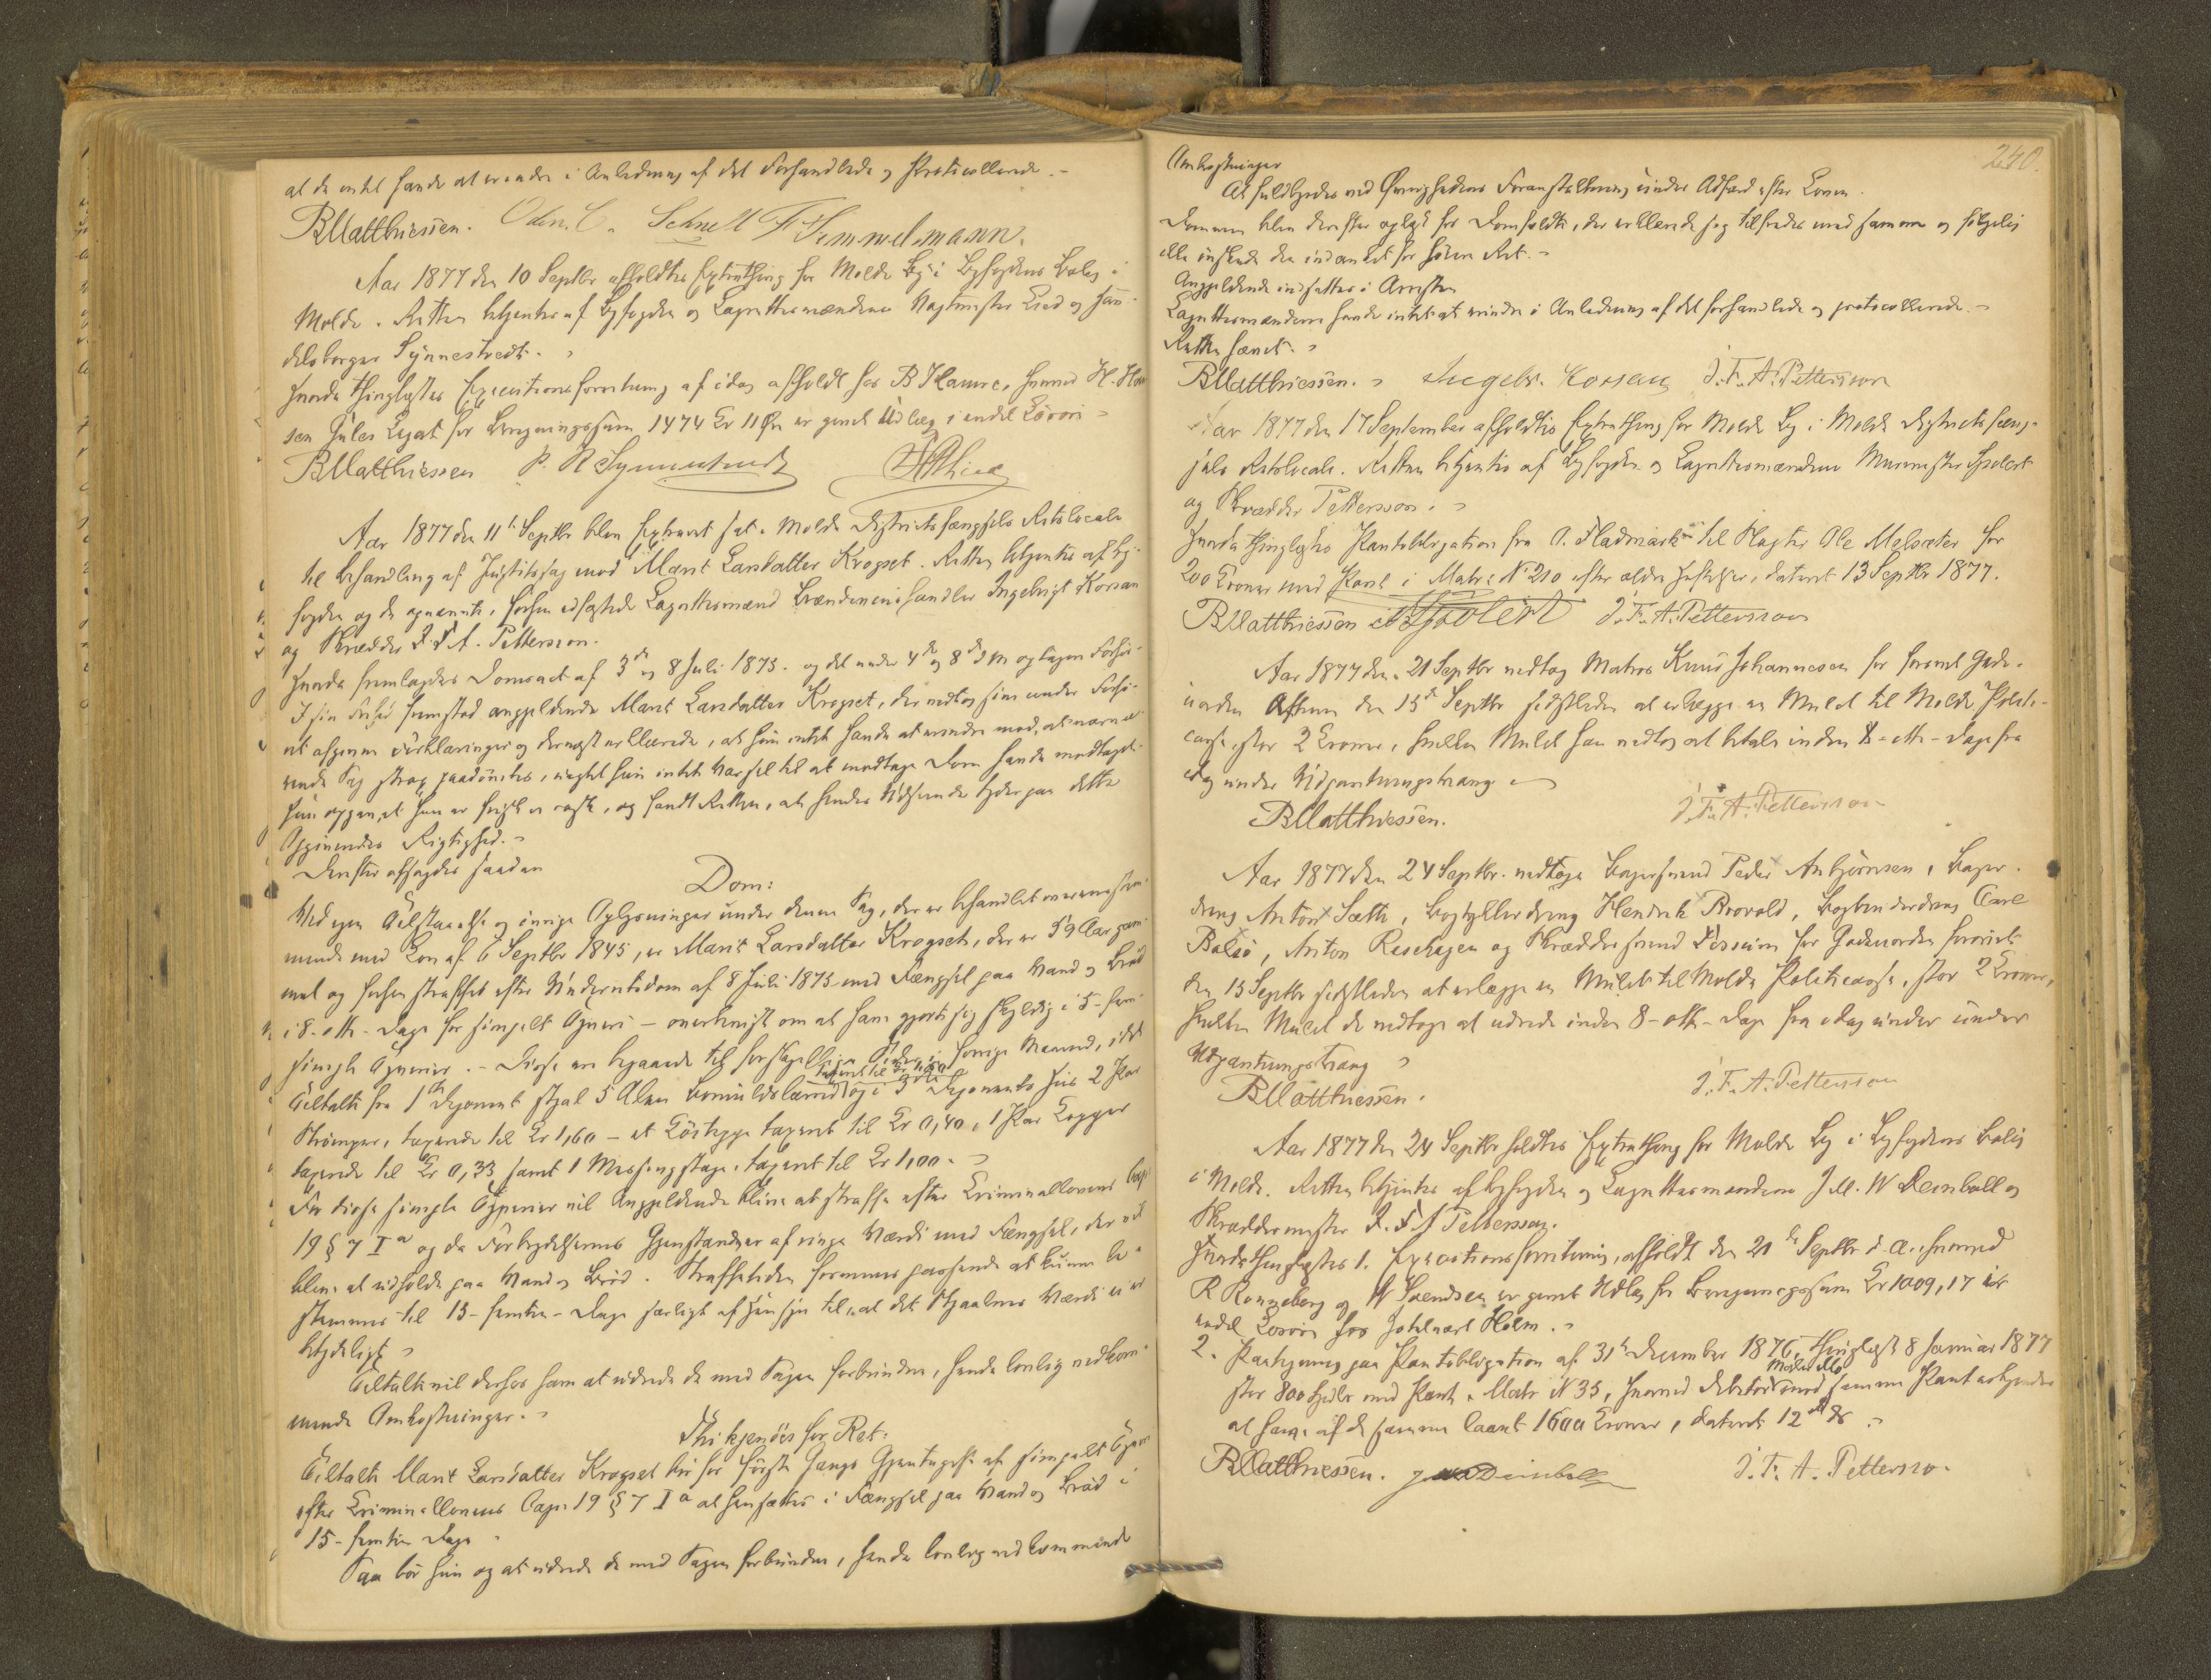 at de intet havde at erindre i Anledning af det Forhandlede og Protocollerede.-
BMatthiessen. Oden. C. Schnell F Himmelmann.
Aar 1877 den 10 Septbr afholdtes Extrathing for Molde By i Byfogdens Bolig i
Molde. Retten betjentes af Byfogden og Lagrettesmændene Vagtmester Lied og Han-
delsborger Synnestvedt.
Hvorda thinglystes Executionsforretning af idag afholdt hos B Hamre, hvorved H. Han
sen Jules Legat for Bevgningssum 1474 Kr 11 Øre er gjort Udlæg i endel Løsøre
BMatthiessen P. R Synnestvedt
Aar 1877 den 11te Septbr blev Extraret sat i Molde Districtsfængsels Retslocale
til Behandling af Justitssag mod Marit Larsdatter Krogset. Retten betjentes af By-
fogden og de opnævnte, forhen edfæstede Lagrettesmænd Brændevinshandler Ingebrigt Korsan
og Skrædder I. F A. Petterson.
Hvorda fremlagdes Domsact af 3de og 8 Juli 1873. og det under 4de og 8de d M optagen Forhør.
I sin Tid fremstod angjeldende Marit Larsdatter Krogset, der vedtog sine under Forhø-
ret afgivne Forklaringer og dernæst erklærede, at hun intet havde at erindre mod, at nærvæ-
rende Sag strax paadømtes, uagtet hun intet Varsel til at modtage Dom havde modtaget.
Hun opgav, at hun er frisk og rask, og fandt Retten, at hendes Udseende tyder paa dette
Opgivendes Rigtighed.-
Derefter afsagdes saadan
Dom:
Ved egen Tilstaaelse og øvrige Oplysninger under denne Sag, der er behandlet overensstem-
mende med Lov af 6 Septbr 1845, er Marit Larsdatter Krogset, der er 59 Aar gam-
mel og forhen straffet efter Underretsdom af 8 Juli 1873 med Fængsel paa Vand og Brød
i 8-otte- Dage for simpelt Tyveri - overbevist om at have gjort sig skyldig i 5-fem-
simple Tyverier.- Disse ere begaaede til forskjellige Tider i forrige Maaned, idet
Tiltalte fra 1ste Deponent stjal 5 Alen Bomuldslærred og i 3die Deponents Hus 2 Par
Strømper, taxerede til Kr 1,60 - et taxeret til Kr 0,40, 1 Par
taxerede til Kr 0,33 samt 1 Messingstage, taxeret til Kr 1,00.
For disse simple Tyverier vil Angjeldende blive at straffe efter Criminallovens Cap.
19 § 7 I a og da Forbrydelsernes Gjenstande er af ringe Værdi med Fængsel, der vil
blive at udholde paa Vand og Brød. Straffetiden formenes passende at kunne be-
stemmes til 15-femten- Dage særligt af Hensyn til, at det Stjaalnes Værdi er u-
betydeligt
Tiltalte vil derhos have at udrede de med Sagen forbundne, hende lovlig vedkom-
mende Omkostninger.
Thi kjendes for Ret:
Tiltalte Marit Larsdatter Krogset bør for første Gangs Gjentagelse af simpelt Tyveri
efter Criminallovens Cap. 19 § 7 I a at hensættes i Fængsel paa Vand og Brød i
15-femten Dage
Saa bør hun og at udrede de med Sagen forbundne, hende lovlig vedkommende
240.
Omkostninger
At fuldbyrdes ved Øvrighedens Foranstaltning under Adfærd efter Loven.
Dommen blev derefter oplæst for Domfældte, der erklærede sig tilfreds med samme og følgelig
ikke ønskede den indanket for høiere Ret.-
Angjeldende indsattes i Arresten
Lagrettesmændene havde intet at erindre i Anledning af det forhandlede og protocollerede.-
Retten hævet.
BMatthiessen. Ingebr. Korsan J. F. A. Petterson
Aar 1877 den 17 September afholdtes Extrathing for Molde By i Molde Districtsfæng-
sels Retslocale. Retten betjentes af Byfogden og Lagrettesmændene Muurmester Spolert
og Skrædder Petterson.
Hvorda thinglystes Pantobligation fra O. Fladmark til Slagter Ole Melsæter for
200 Kroner med Pant i Matr: No 210 efter ældre Hæftelser, dateret 13 Septbr 1877.
BMatthiessen Spolert J. F. A. Petterson
Aar 1877 den 21 Septbr vedtog Matros Knud Johannesen for forøvet Gade-
uorden Aftenen den 15de Septbr sidstleden at erlægge en Mulct til Molde Politi-
casse, stor 2 Kroner, hvilken Mulct han vedtog at betale inden 8-otte- Dage fra
idag under Udpantningstvang
BMatthiessen. J. F. A. Petterson
Aar 1877 den 24 Septbr. vedtoge Bagersvend Peder Anbjørnsen, Bager-
dreng Anton Sætte, Bogtrykkerdreng Hendrik Brovold, Bogbinderdreng Carl
Bolsø, Anton Reschagen og Skræddersvend for Gadeuorden forøvet
den 15 Septbr sidstleden at erlægge en Mulct til Molde Politicasse, stor 2 Kroner,
hvilken Mulct de vedtoge at udrede inden 8-otte- Dage fra idag under under
Udpantningstvang
BMatthiessen. J. F. A. Petterson
Aar 1877 den 24 Septbr holdtes Extrathing for Molde By i Byfogdens Bolig
i Molde. Retten betjentes af Byfogden og Lagrettesmændene J M. W Deinboll og
Skræddermester I. F A Petterson.
Hvorda thinglystes 1. Executionsforretning, afholdt den 21de Septbr d. A., hvorved
R Ronneberg og N Svendsen er gjort Udlæg for Bevgningssum Kr 1009,17 i
endel Løsøre hos Hotelvært Holm.
2. Paategning paa Pantobligation af 31te December 1876, thinglæst 8 Januar 1877
stor 800 Spdlr med Pant i Matr No 35, hvorved Debitor med samme Pant erkjender
at have af de samme laant 1600 Kroner, dateret 12te ds
BMatthiessen. J M W Deinboll J. F. A. Petterson